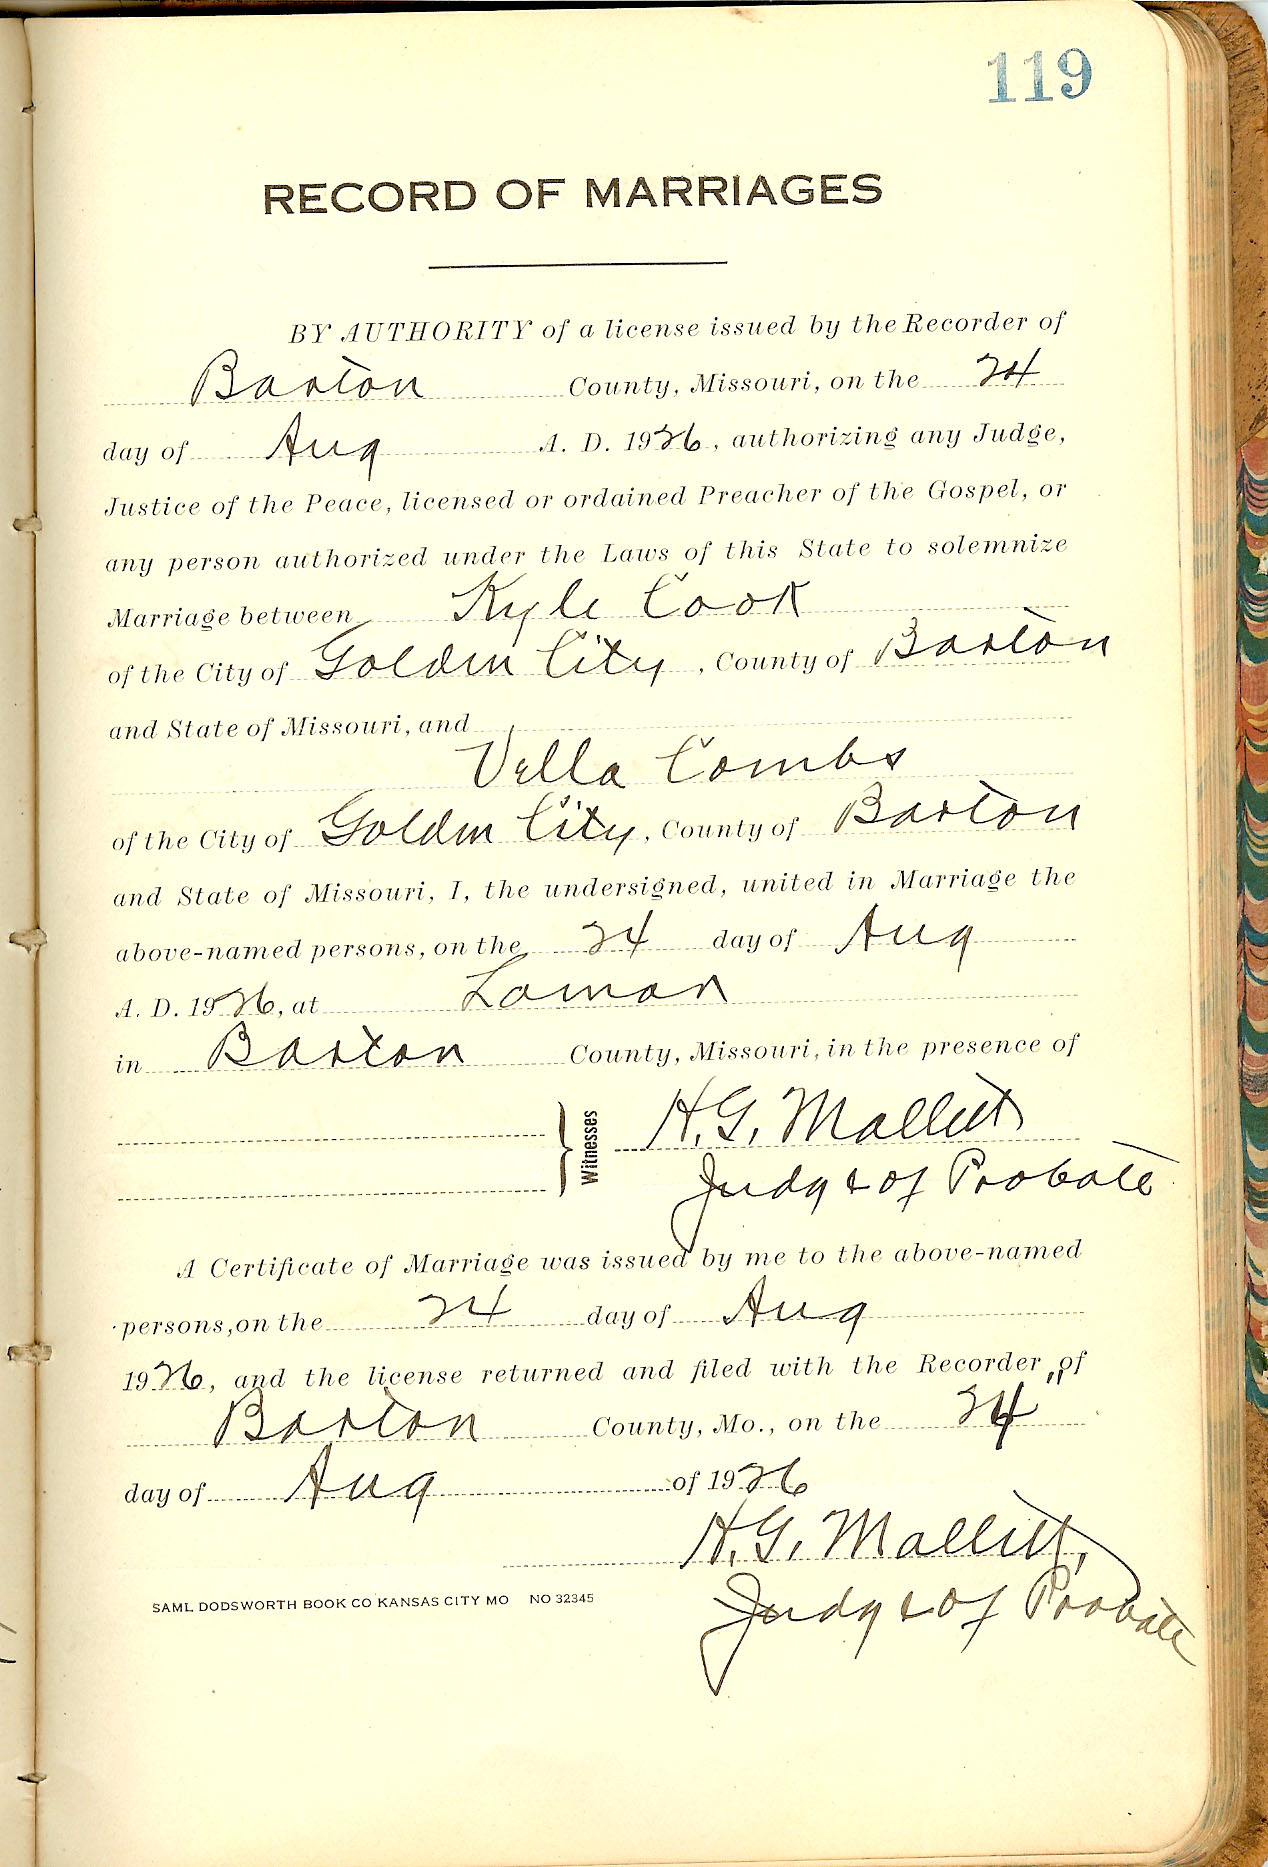 119
RECORD OF MARRIAGES
BY AUTHORITY of a license issued by the Recorder of
Barton County, Missouri, on the 24
day of Aug A. D. 1926, authorizing any Judge,
Justice of the Peace, licensed or ordained Preacher of the Gospel, or
any person authorized under the Laws of this State to solemnize
Marriage between Kyle Cook
of the City of Golden City, County of Barton
and State of Missouri, and
Vella Combs
of the City of Golden City, County of Barton
and State of Missouri, I, the undersigned, united in Marriage the
above-named persons, on the 24 day of Aug
A. D. 1926, at Lamar
in Barton County, Missouri, in the presence of
Witnesses H. G. Mallett
Judge of Probate
A Certificate of Marriage was issued by me to the above-named
persons, on the 24 day of Aug
1926, and the license returned and filed with the Recorder of
Barton County, Mo., on the 24
day of Aug of 1926
H. G. Mallett,
Judge of Probate
SAML DODSWORTH BOOK CO KANSAS CITY MO NO 32345